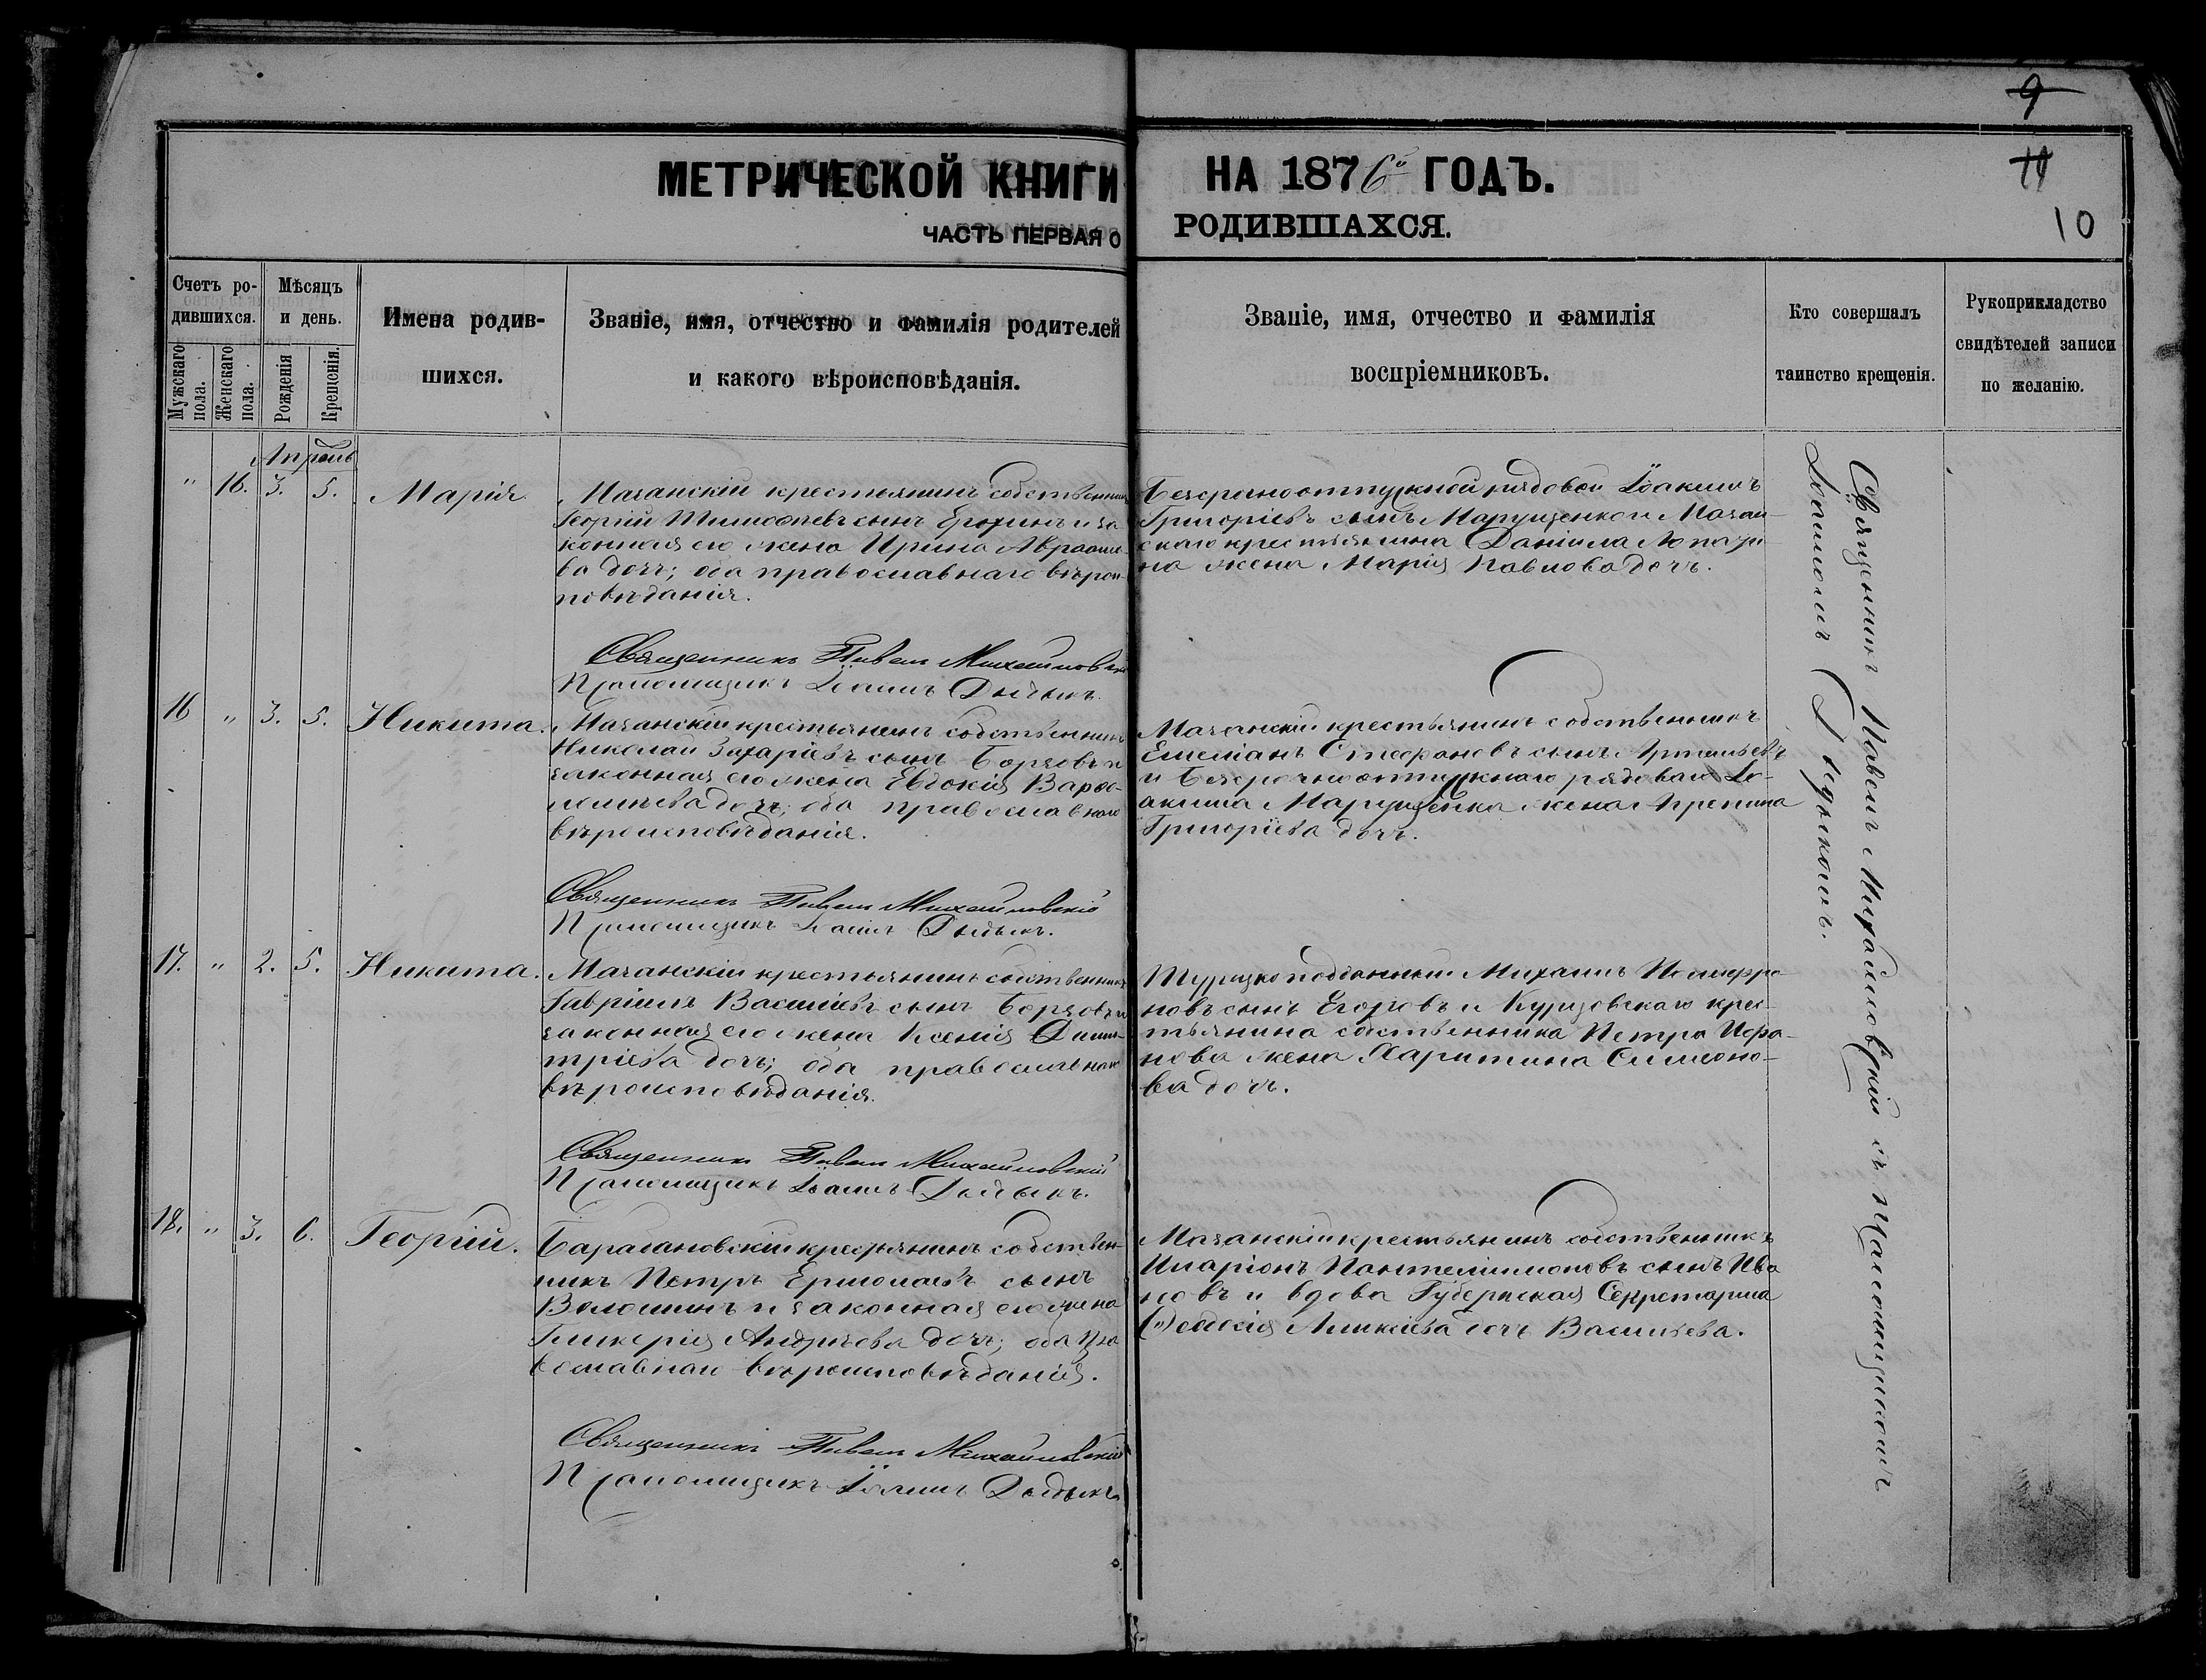 9
11
10
МЕТРИЧЕСКОЙ КНИГИ НА 1876й ГОДЪ.
ЧАСТЬ ПЕРВАЯ О РОДИВШАХСЯ.
Счетъ ро-
дившихся.
Мужскаго пола.
Женскаго пола.
Мѣсяцъ
и день.
Рожденія
Крещенія.
Имена родив-
шихся.
Званіе, имя, отчество и фамилія родителей
и какого вѣроисповѣданія.
Званіе, имя, отчество и фамилія
воспріемниковъ.
Кто совершалъ
таинство крещенія.
Рукоприкладство
свидѣтелей записи
по желанію.
Апрѣль
" 16. 3. 5. Марія.
Мачанскій крестьянинъ собственникъ
Георгій Тимофѣевъ сынъ Ерохинъ и за
конная его жена Ирина Авраами-
ва дочь; оба православнаго вѣрои-
повѣданія.
Священникъ Павелъ Михайловскій
Пономщикъ Іоаннъ Дыдыкъ.
Безсрочноотпускной рядовой Іоакимъ
Григоріевъ сынъ Марущенко и Мачан-
скаго крестьянина Даніила
на жена Марія Павлова дочь.
16 " 3. 5. Никита.
Мачанскій крестьянинъ собственникъ
Николай Захаріевъ сынъ Борзовъ и
законная его жена Евдокія Варфо-
ломѣева дочь; оба православнаго
вѣроисповѣданія.
Священникъ Павелъ Михайловскій
Іоаннъ Дыдыкъ.
Мачанскій крестьянинъ собственникъ
Емеліанъ Стефановъ сынъ
и Безсрочноотпускнаго рядоваго Іо-
акима Марущенка жена Ирина
Григоріева дочь.
17. " 2. 5. Никита.
Мачанскій крестьянинъ собственникъ
Гавріилъ Василіевъ сынъ Борзовъ и
законная его жена Ксенія Дими-
тріева дочь; оба православнаго
вѣроисповѣданія.
Священникъ Павелъ Михайловскій
Іоаннъ Дыдыкъ.
Турецкоподданный Михаилъ
новъ сынъ Егоровъ и Курцовскаго крес-
тьянина собственника Петра
нова жена Харитина Симеоно-
ва дочь.
18. " 3. 6. Георгій.
Барагановскій крестьянинъ собствен-
никъ Петръ Ермолаевъ сынъ
Волошинъ и законная его жена
Гликерія Андреева дочь; оба пра
вославнаго вѣроисповѣданія.
Священникъ Павелъ Михайловскій
Іоаннъ Дыдыкъ.
Мачанскій крестьянинъ собственникъ
Иларіонъ Пантелимоновъ сынъ Ива
новъ и вдова Губернская Секретарша
Феодосія Алексіева дочь Васильева.
Священникъ Павелъ Михайловскій съ
Іоанномъ Дыдыкомъ.